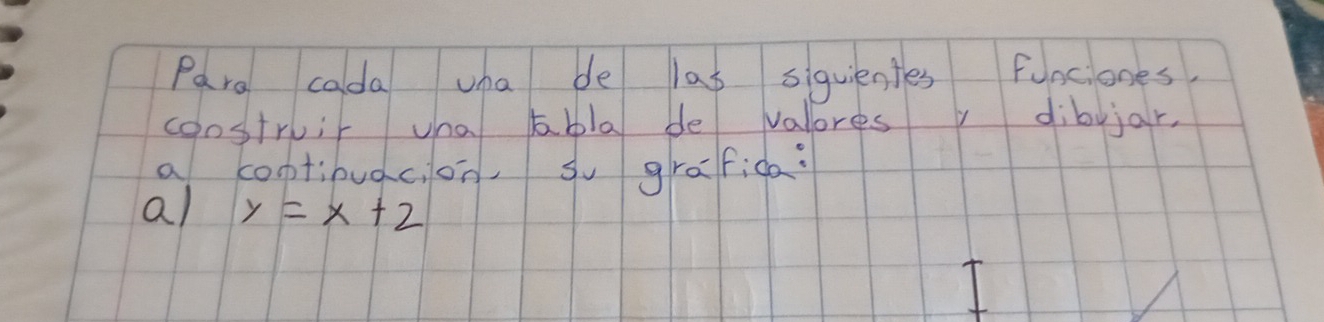 Para cada una de las siguientes funciones,
construir una tabla de valores y dibujar,
a continuación, su gráfica:
a) y = x + 2